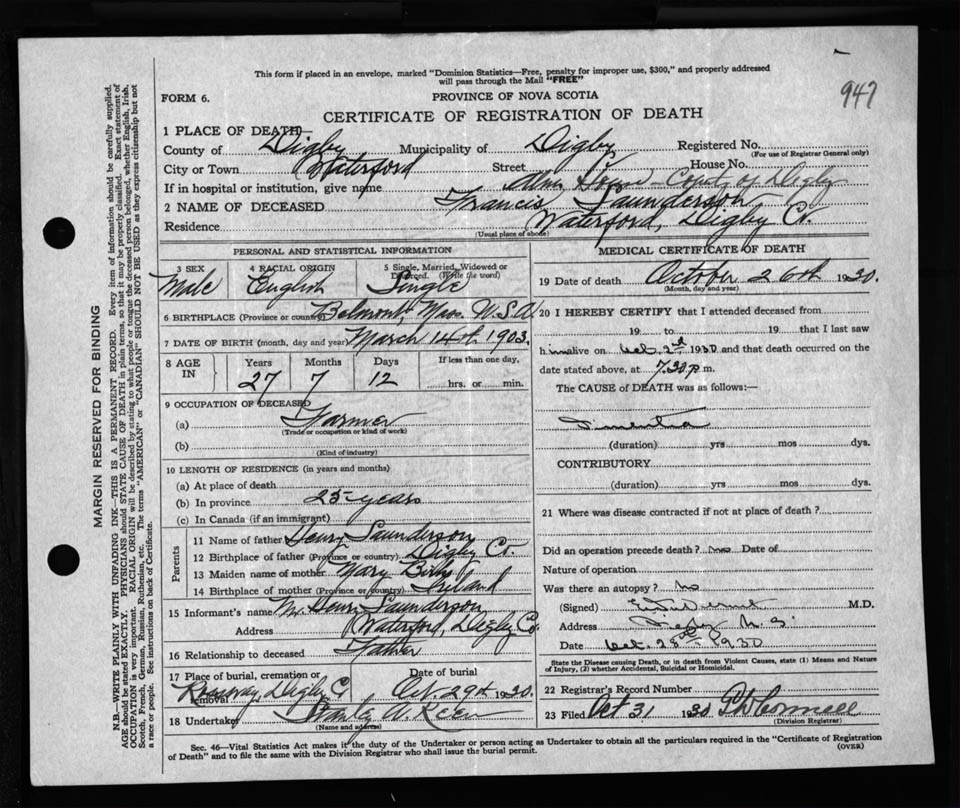 This form if placed in an envelope, marked "Dominion Statistics—Free, penalty for improper use, $300," and properly addressed
will pass through the Mail "FREE"
947
FORM 6. PROVINCE OF NOVA SCOTIA
CERTIFICATE OF REGISTRATION OF DEATH
1 PLACE OF DEATH—
County of Digby Municipality of Digby Registered No.
(For use of Registrar General only)
City or Town Waterford Street House No.
If in hospital or institution, give name Alms House — of Digby
2 NAME OF DECEASED Francis Saunderson
Residence Waterford, Digby Co.
(Usual place of abode)
PERSONAL AND STATISTICAL INFORMATION
3 SEX 4 RACIAL ORIGIN 5 Single, Married, Widowed or Divorced. (Write the word)
Male English Single
6 BIRTHPLACE (Province or country) Belmont, Mass. U.S.A.
7 DATE OF BIRTH (month, day and year) March 14th 1903.
8 AGE IN Years Months Days If less than one day,
27 7 12 hrs. or min.
9 OCCUPATION OF DECEASED
(a) Farmer
(Trade or occupation or kind of work)
(b)
(Kind of industry)
10 LENGTH OF RESIDENCE (in years and months)
(a) At place of death
(b) In province 25 years
(c) In Canada (if an immigrant)
Parents
11 Name of father Henry Saunderson
12 Birthplace of father (Province or country) Digby Co.
13 Maiden name of mother Mary
14 Birthplace of mother (Province or country)
15 Informant's name Mr. Henry Saunderson
Address Waterford, Digby Co.
16 Relationship to deceased Father
17 Place of burial, cremation or removal Date of burial
Rossway, Digby Co Oct. 29th 1930.
18 Undertaker Stanly W.
(Name and address)
MEDICAL CERTIFICATE OF DEATH
19 Date of death October 26th 1930.
(Month, day and year)
20 I HEREBY CERTIFY that I attended deceased from
19 to 19 that I last saw
h im alive on Oct. 2nd 1930 and that death occurred on
date stated above, at 7.30 p.m.
The CAUSE of DEATH was as follows:—
Dimentia
(duration) yrs mos dys.
CONTRIBUTORY
(duration) yrs mos dys.
21 Where was disease contracted if not at place of death?
Did an operation precede death? no Date of
Nature of operation
Was there an autopsy? no
(Signed) M.D.
Address Digby N.S.
Date Oct. 28th 1930
State the Disease causing Death, or in death from Violent Causes, state (1) Means and Nature
of Injury, (2) whether Accidental, Suicidal or Homicidal.
22 Registrar's Record Number
23 Filed Oct 31 1930
(Division Registrar)
Sec. 46—Vital Statistics Act makes it the duty of the Undertaker or person acting as Undertaker to obtain all the particulars required in the "Certificate of Registration
of Death" and to file the same with the Division Registrar who shall issue the burial permit. (OVER)
MARGIN RESERVED FOR BINDING
N.B.—WRITE PLAINLY WITH UNFADING INK—THIS IS A PERMANENT RECORD. Every item of information should be carefully supplied.
AGE should be stated EXACTLY. PHYSICIANS should STATE CAUSE OF DEATH in plain terms, so that it may be properly classified. Exact statement of
OCCUPATION is very important. RACIAL ORIGIN will be described by stating to what people or tongue the deceased person belonged, whether English, Irish,
Scotch, French, German, Russian, Ruthenian, etc. The terms "AMERICAN" or "CANADIAN" SHOULD NOT BE USED as they express citizenship but not
a race or people. See instructions on back of Certificate.